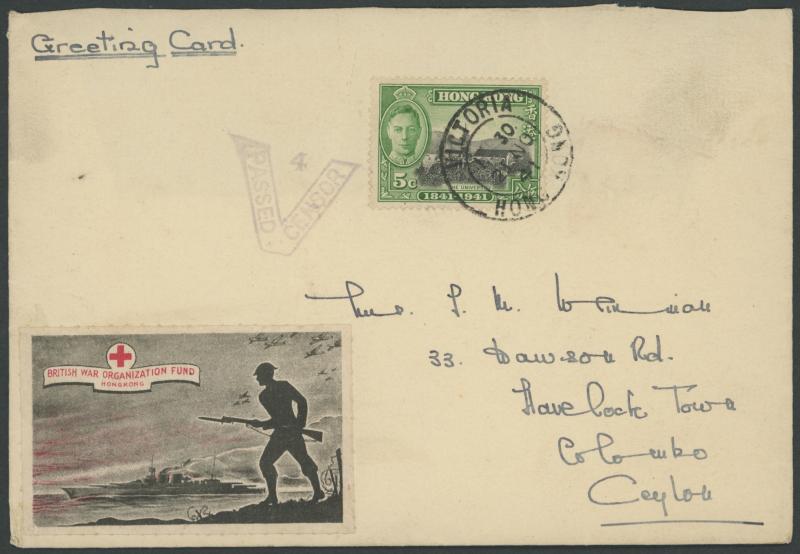 Greeting Card.
HONG KONG
香港
5c
THE UNIVERSITY
1841-1941
VICTORIA
30
HONG KONG
4
PASSED
CENSOR
33. Dawson Rd.
Havelock Town
Colombo
Ceylon
BRITISH WAR ORGANIZATION FUND
HONGKONG